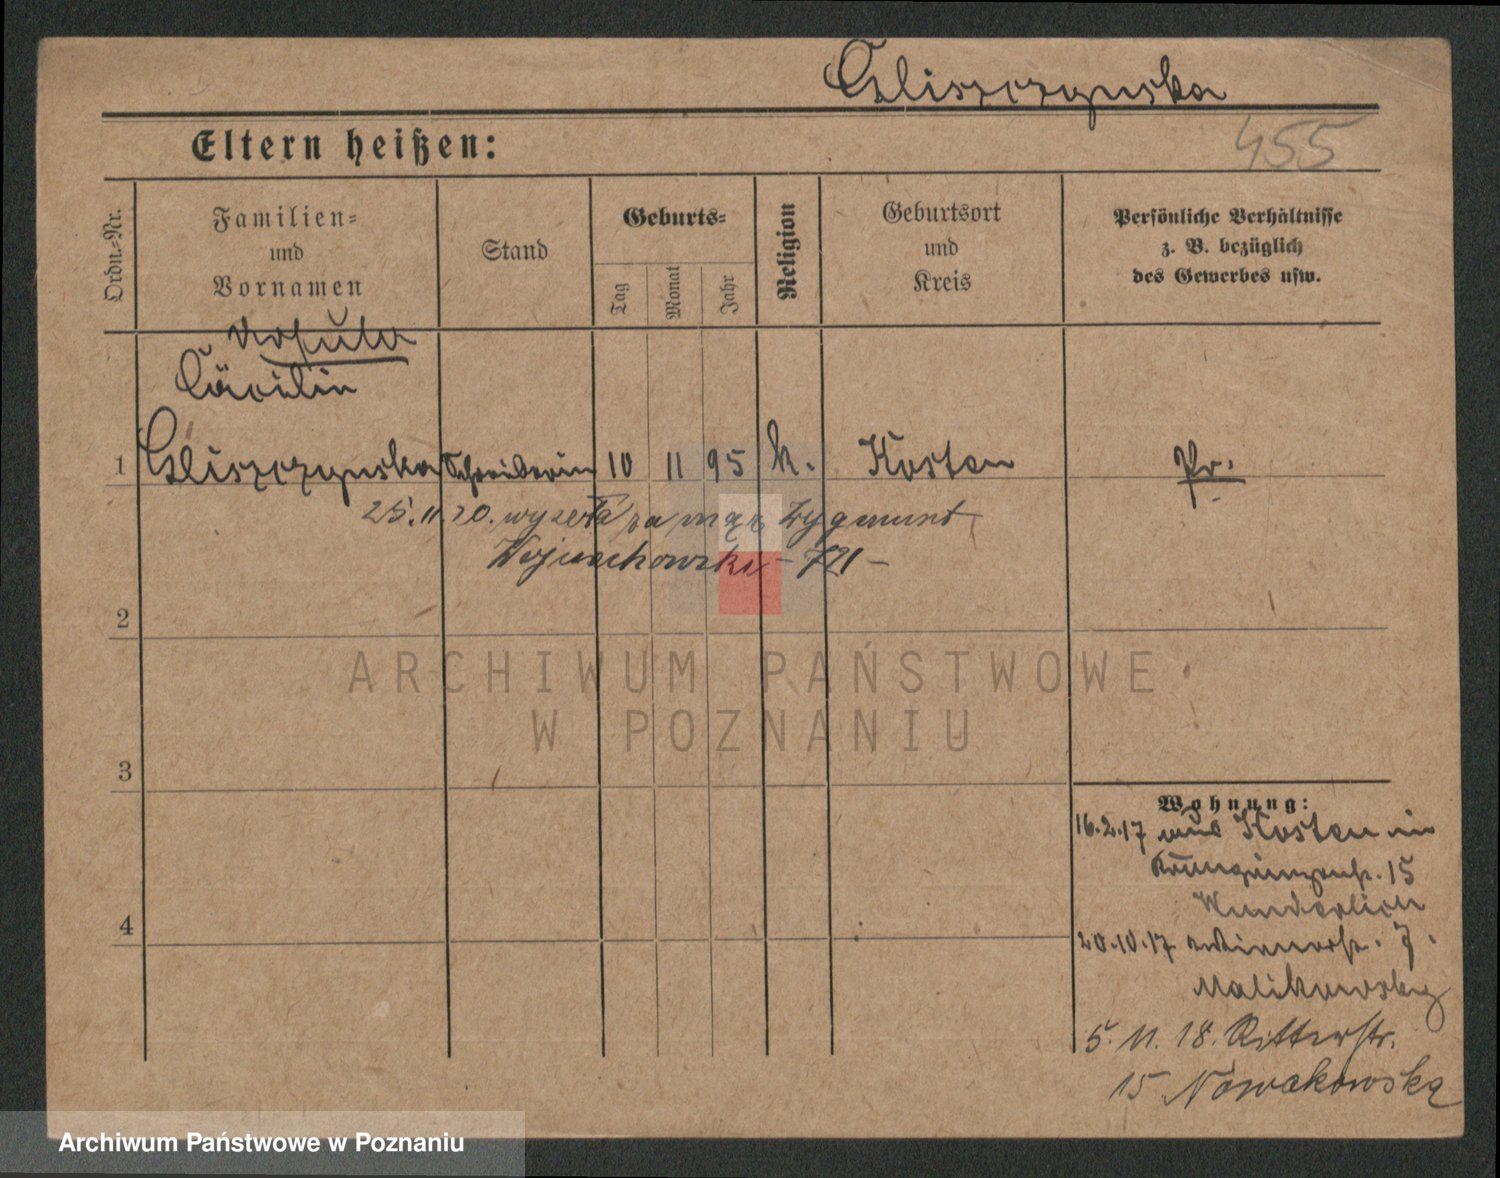 Gliszczynska
455
Eltern heißen:
Ordn.-Nr.
Familien-
und
Vornamen
Stand
Geburts-
Tag
Monat
Jahr
Religion
Geburtsort
und
Kreis
Persönliche Verhältnisse
z. B. bezüglich
des Gewerbes usw.
Cäcilie
1 Gliszczynska Schreiberin 10 11 95 k. Kosten Pr.
25.11.20. wyszła za mąż Zygmunt
Wojciechowski - 721 -
2
3
4
Wohnung:
16.2.17 aus Kosten in
15
Wunderlich
20.10.17 7.
Malikowsky
5. 11. 18. Ritterstr.
15 Nowakowska
ARCHIWUM PAŃSTWOWE
W POZNANIU
Archiwum Państwowe w Poznaniu